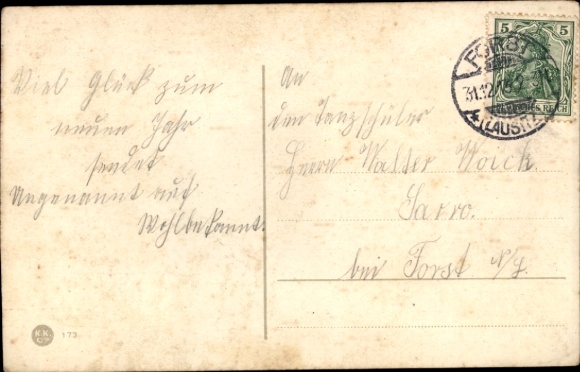 Viel Glück zum
neuen Jahr
sendet
Ungenannt auf
Wohlbekannt.
An
den Tanzschüler
Herrn Walter Woick.
Sacro.
bei Forst N/L.
5 5
FORST
31.12.
(LAUSITZ)
K.K.
Co
173